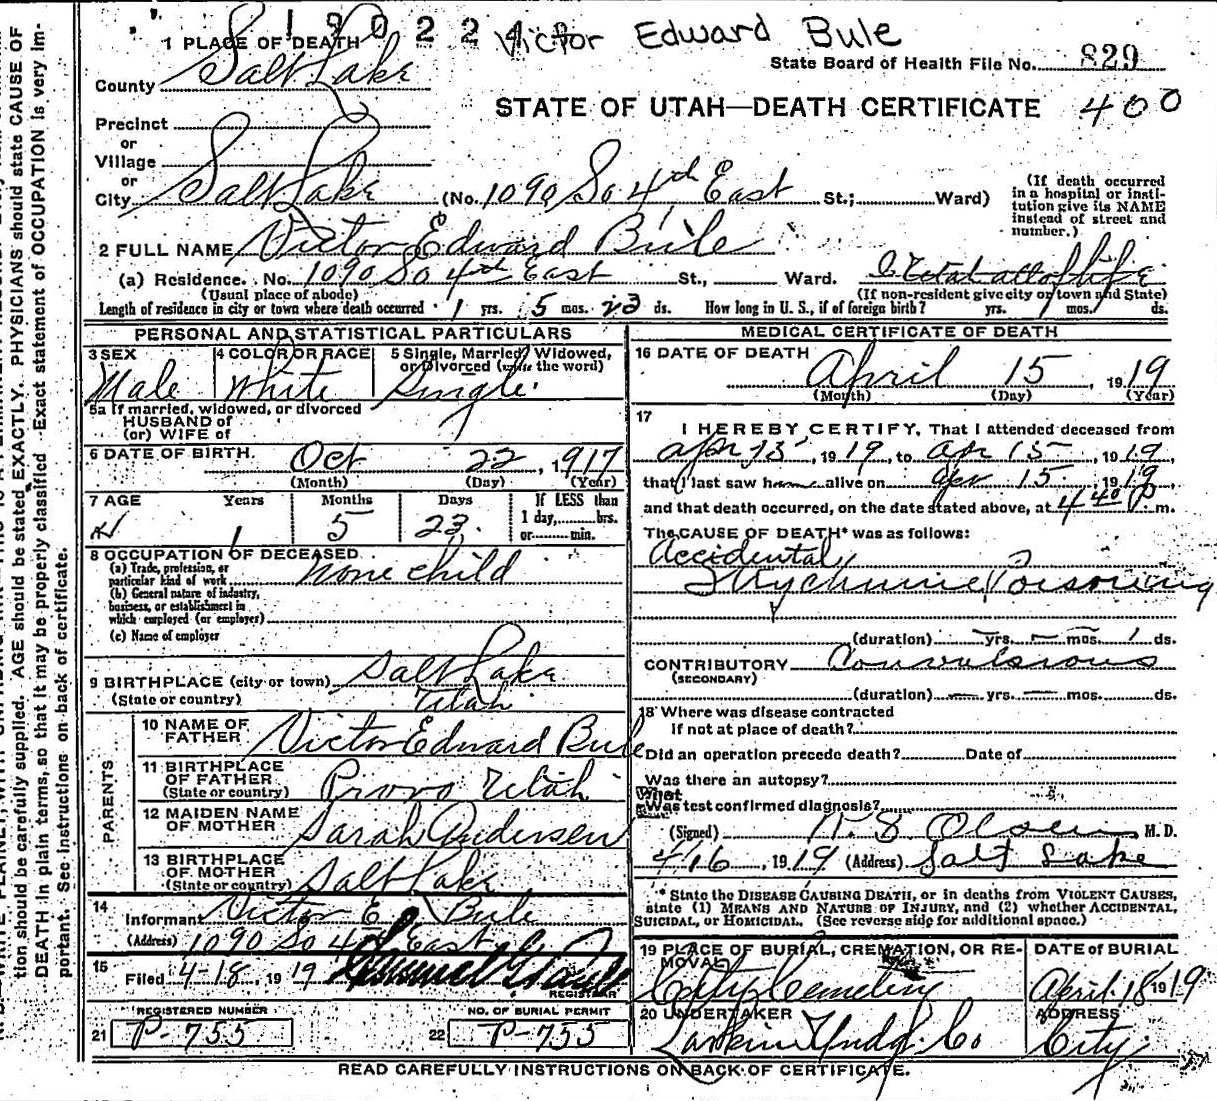 190224
Victor Edward Bule
1 PLACE OF DEATH
State Board of Health File No. 829
County Salt Lake
STATE OF UTAH—DEATH CERTIFICATE 400
Precinct
or
Village
or
City Salt Lake (No. 1090 So 4th East St.; Ward)
(If death occurred in a hospital or institution give its NAME instead of street and number.)
2 FULL NAME Victor Edward Bule
(a) Residence. No. 1090 So 4th East St., Ward.
(Usual place of abode) (If non-resident give city or town and State)
Length of residence in city or town where death occurred 1 yrs. 5 mos. 23 ds. How long in U. S., if of foreign birth? yrs. mos. ds.
PERSONAL AND STATISTICAL PARTICULARS
3 SEX Male
4 COLOR OR RACE White
5 Single, Married, Widowed, or Divorced (write the word) Single
5a If married, widowed, or divorced
HUSBAND of
(or) WIFE of
6 DATE OF BIRTH. Oct 22, 1917
(Month) (Day) (Year)
7 AGE Years 1 Months 5 Days 23. If LESS than 1 day, hrs. or min.
8 OCCUPATION OF DECEASED
(a) Trade, profession, or particular kind of work None child
(b) General nature of industry, business, or establishment in which employed (or employer)
(c) Name of employer
9 BIRTHPLACE (city or town) Salt Lake
(State or country) Utah
PARENTS
10 NAME OF FATHER Victor Edward Bule
11 BIRTHPLACE OF FATHER (State or country) Provo Utah
12 MAIDEN NAME OF MOTHER Sarah Andersen
13 BIRTHPLACE OF MOTHER (State or country) Salt Lake
14 Informant Victor E. Bule
(Address) 1090 So 4th East
15 Filed 4-18, 1919
REGISTRAR
REGISTERED NUMBER
21 P-755
NO. OF BURIAL PERMIT
22 P-755
MEDICAL CERTIFICATE OF DEATH
16 DATE OF DEATH April 15, 1919
(Month) (Day) (Year)
17
I HEREBY CERTIFY, That I attended deceased from
Apr 13, 1919, to Apr 15, 1919,
that I last saw him alive on Apr 15, 1919
and that death occurred, on the date stated above, at 4 40 P. m.
The CAUSE OF DEATH* was as follows:
Accidental
Strychnine Poisoning
(duration) yrs. mos. 1 ds.
CONTRIBUTORY Convulsions
(SECONDARY)
(duration) yrs. mos. ds.
18 Where was disease contracted
If not at place of death?
Did an operation precede death? Date of
Was there an autopsy?
What test confirmed diagnosis?
(Signed) Olsen M. D.
4/16, 1919 (Address) Salt Lake
* State the DISEASE CAUSING DEATH, or in deaths from VIOLENT CAUSES, state (1) MEANS AND NATURE OF INJURY, and (2) whether ACCIDENTAL, SUICIDAL, or HOMICIDAL. (See reverse side for additional space.)
19 PLACE OF BURIAL, CREMATION, OR REMOVAL City Cemetery
DATE OF BURIAL April 18 1919
20 UNDERTAKER Larkin Undg. Co
ADDRESS City
READ CAREFULLY INSTRUCTIONS ON BACK OF CERTIFICATE.
tion should be carefully supplied. AGE should be stated EXACTLY. PHYSICIANS should state CAUSE OF
DEATH in plain terms, so that it may be properly classified. Exact statement of OCCUPATION is very im-
portant. See instructions on back of certificate.